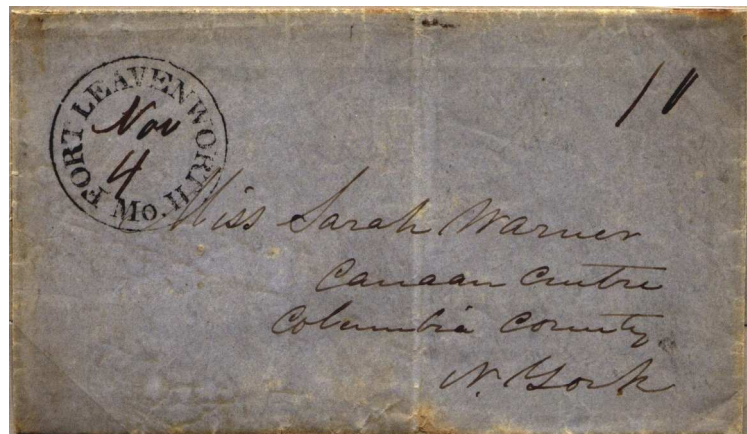 FORT LEAVENWORTH Mo.
Nov
4
10
Miss Sarah Warner
Canaan Centre
Columbia County
N. York